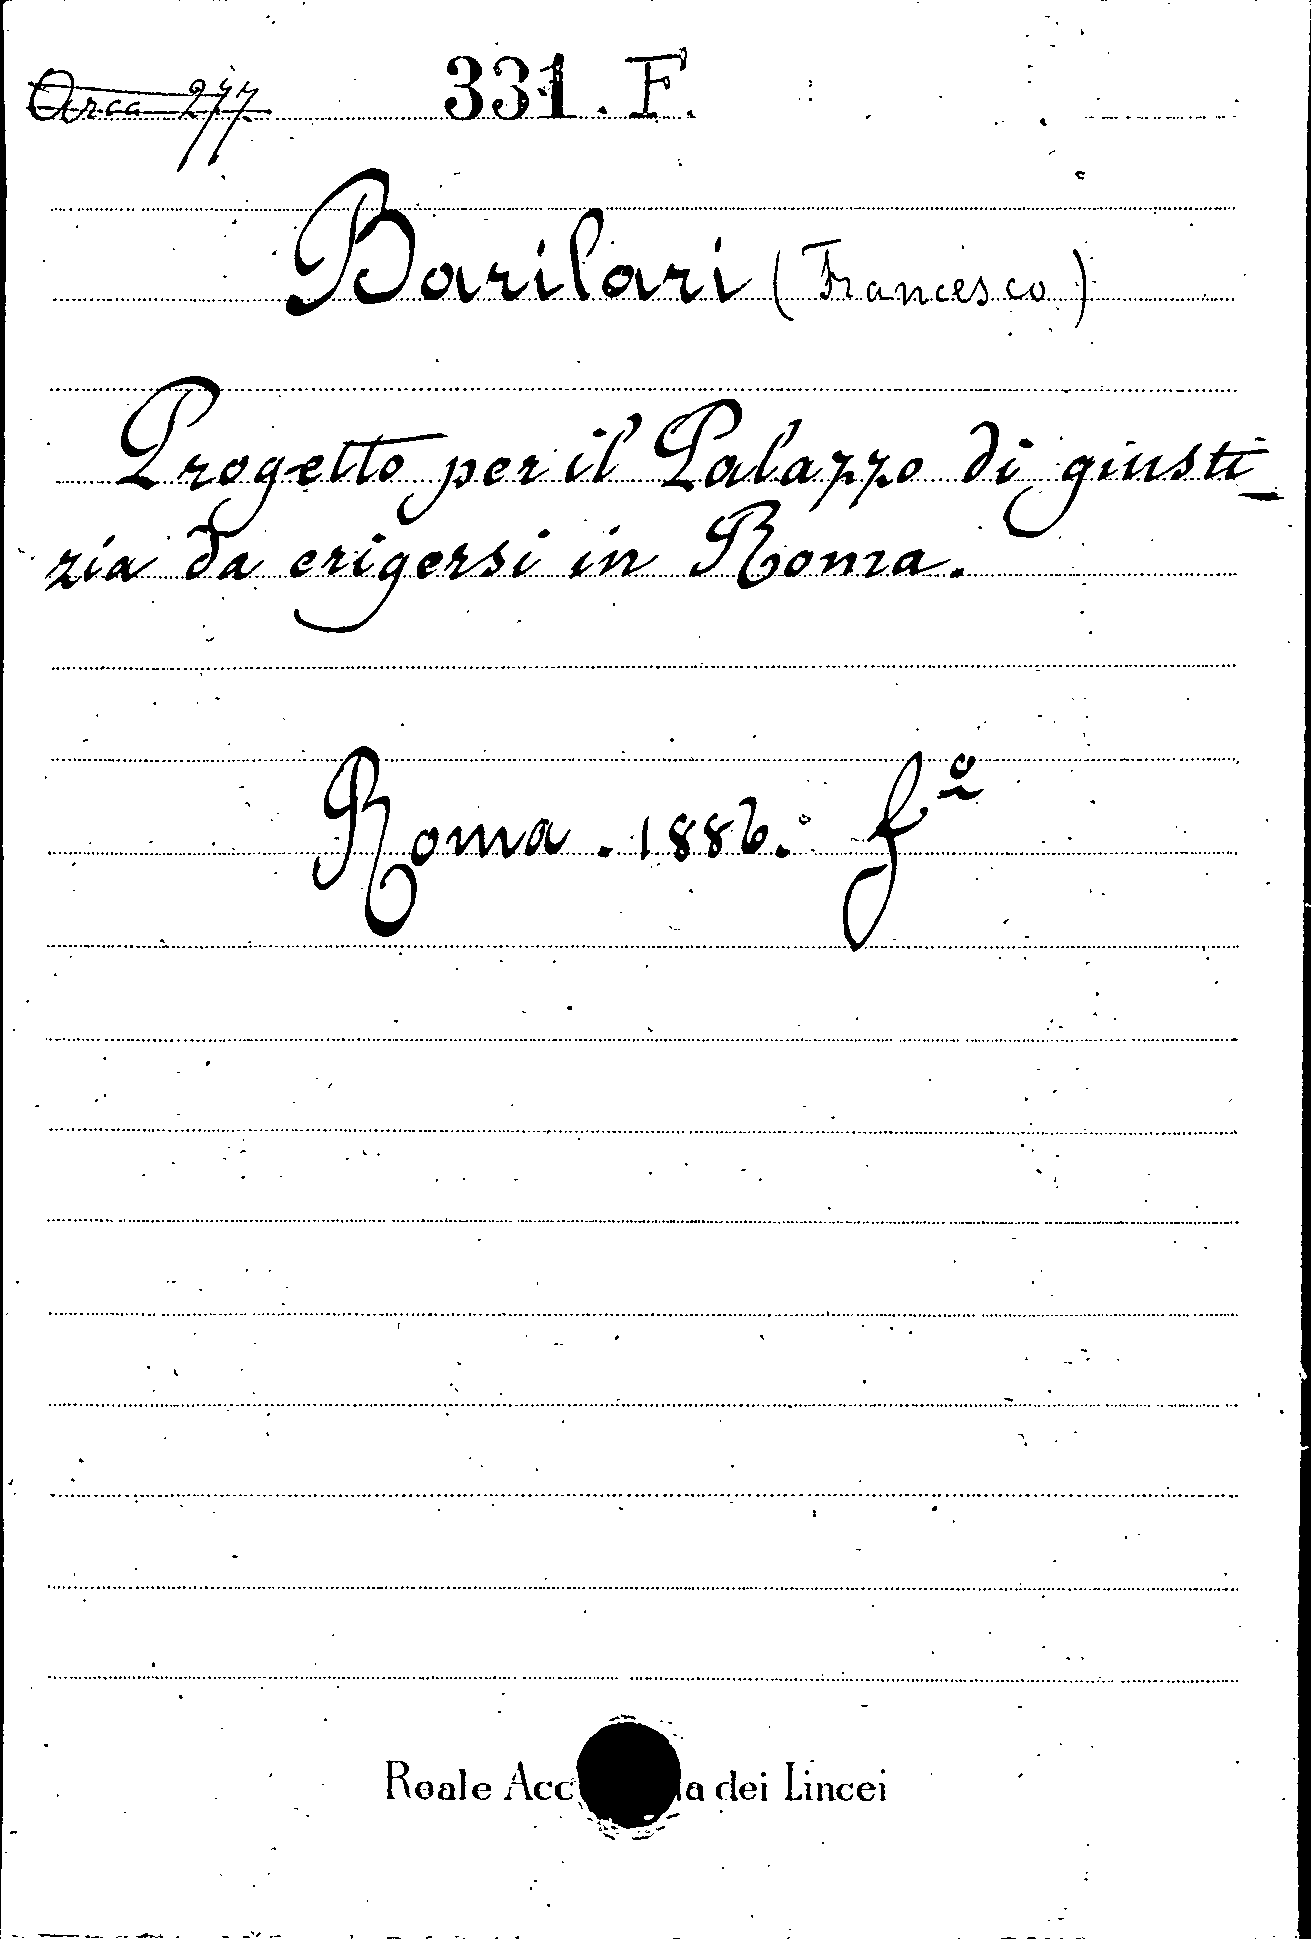 Arca 277. 331. F.
Barilari (Francesco)
Progetto per il Palazzo di giusti-
zia da erigersi in Roma.
Roma. 1886. fº
Reale Acc a dei Lincei